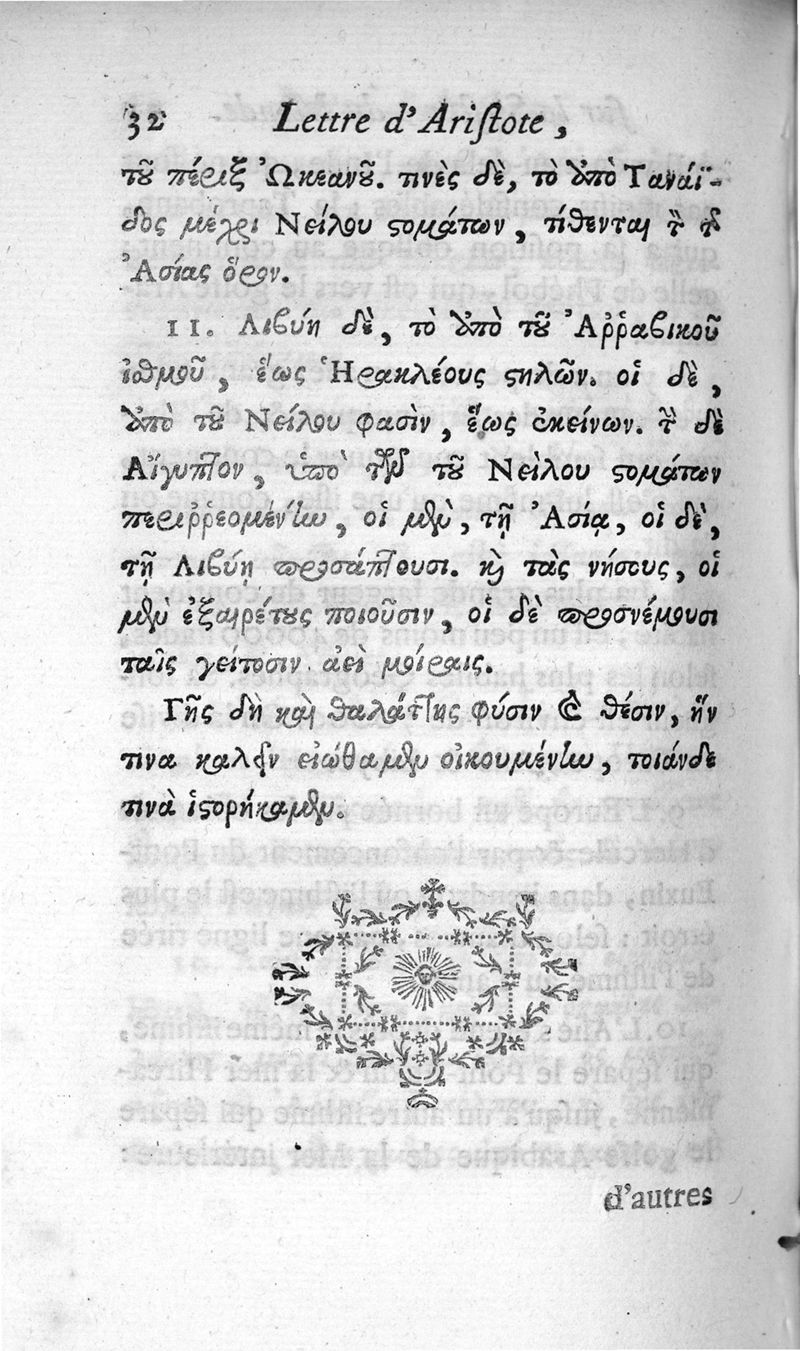 32 Lettre d'Ariſtote,
τȣ͂ πέριξ Ὠκεανȣ͂. τινὲς δὲ, τὸ ἀπὸ Τανάϊ-
δος μέχρι Νείλου ϛομάτων, τίθενται τὸν τῆς
Ἀσίας ὅρον.
11. Λιβύη δὲ, τὸ ἀπὸ τȣ͂ Ἀῤῥαβικοῦ
ἰσθμοῦ, ἕως Ἡρακλέους ϛηλῶν. οἱ δὲ,
ἀπὸ τȣ͂ Νείλου φασὶν, ἕως ἐκείνων. τὴν δὲ
Αἴγυπτον, ὑπὸ τῶν τȣ͂ Νείλου ϛομάτων
περιῤῥεομένην, οἱ μὲν, τῇ Ἀσίᾳ, οἱ δὲ,
τῇ Λιβύῃ προσάπτουσι. καὶ τὰς νήσους, οἱ
μὲν ἐξαιρέτȣς ποιοῦσιν, οἱ δὲ προσνέμουσι
ταῖς γείτοσιν ἀεὶ μοίραις.
Γῆς δὴ καὶ θαλάττης φύσιν καὶ θέσιν, ἥν
τινα καλεῖν εἰώθαμεν οἰκουμένην, τοιάνδε
τινὰ ἱϛορήκαμεν.
d'autres